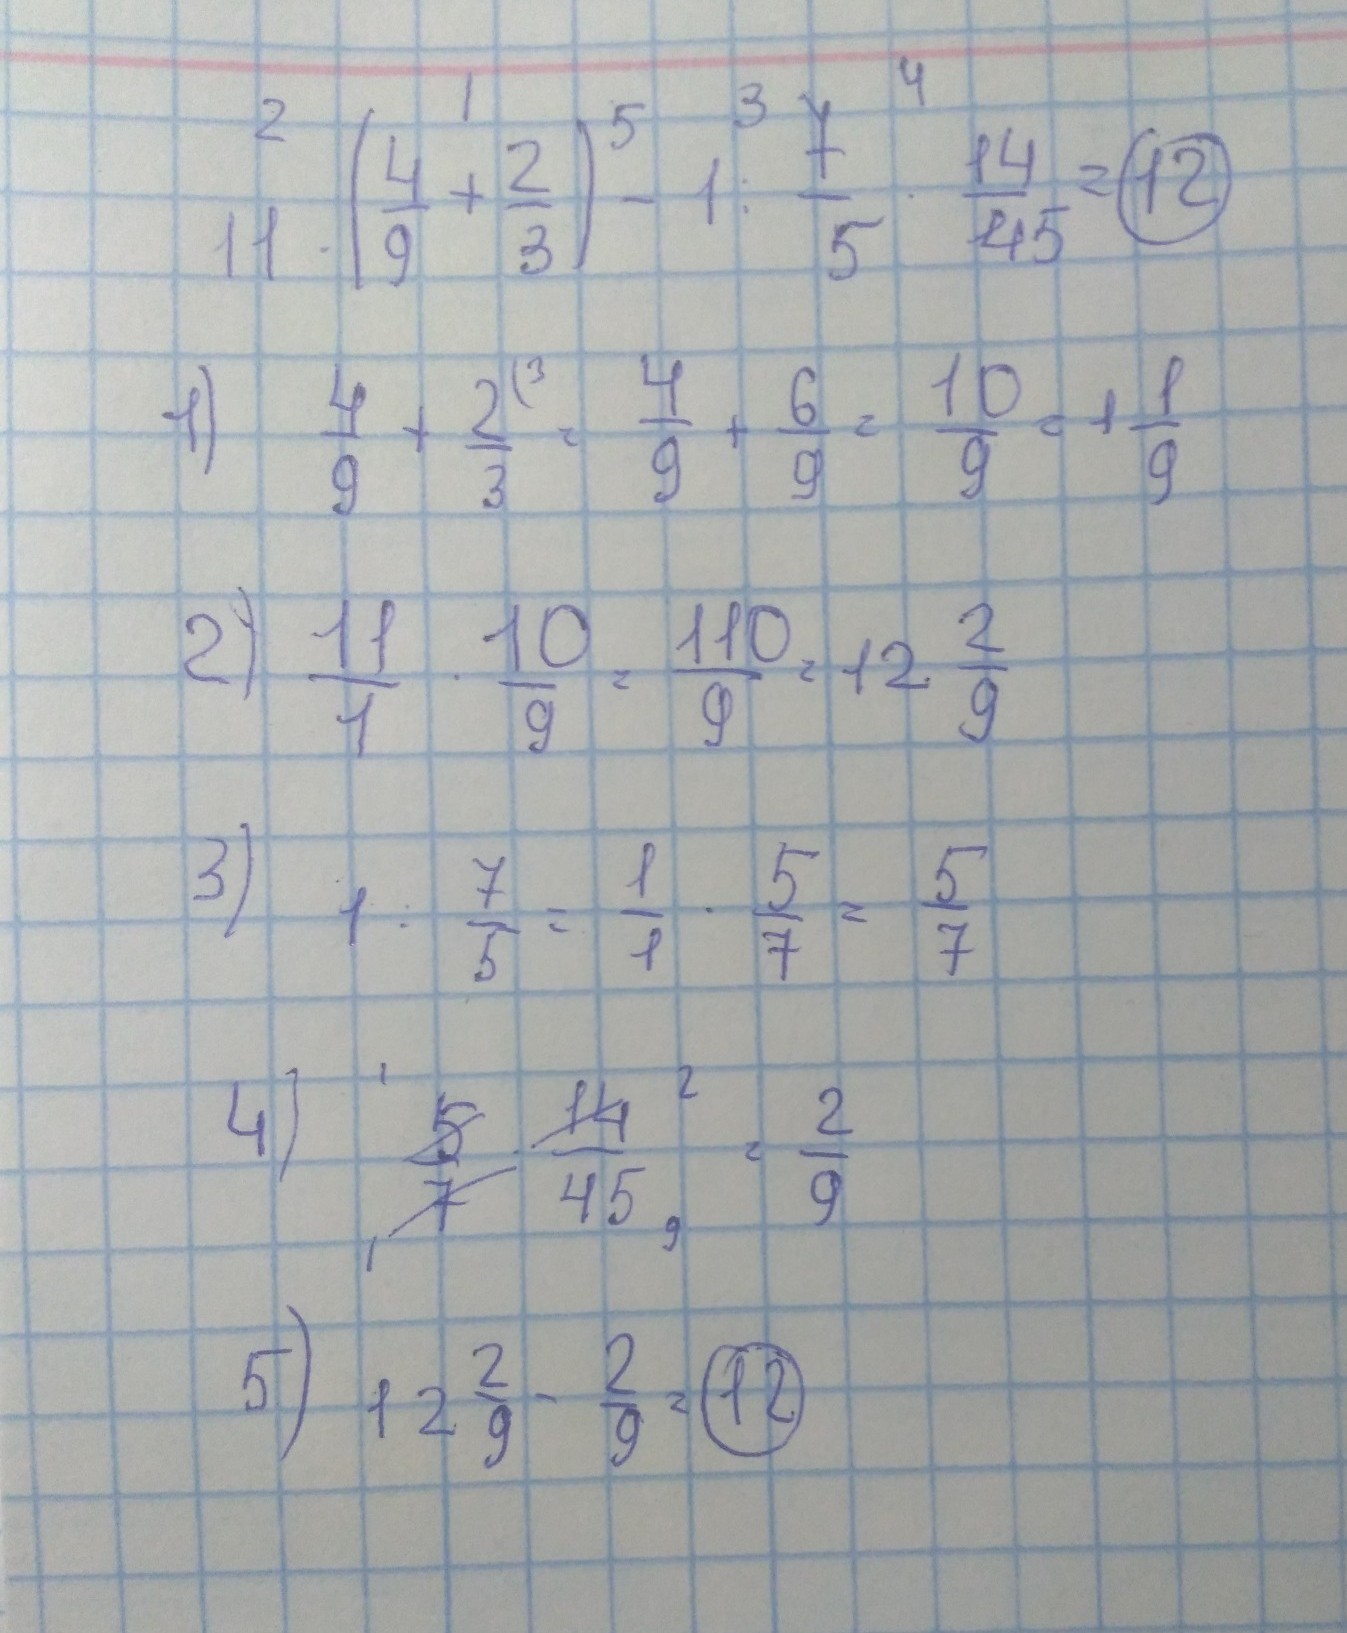 11 · (4/9 + 2/3) - 1 : 7/5 · 14/45 = 12
1) 4/9 + 2/3 (3 = 4/9 + 6/9 = 10/9 = 1 1/9
2) 11/1 · 10/9 = 110/9 = 12 2/9
3) 1 : 7/5 = 1/1 · 5/7 = 5/7
4) 5/7 · 14/45 = 2/9
5) 12 2/9 - 2/9 = 12